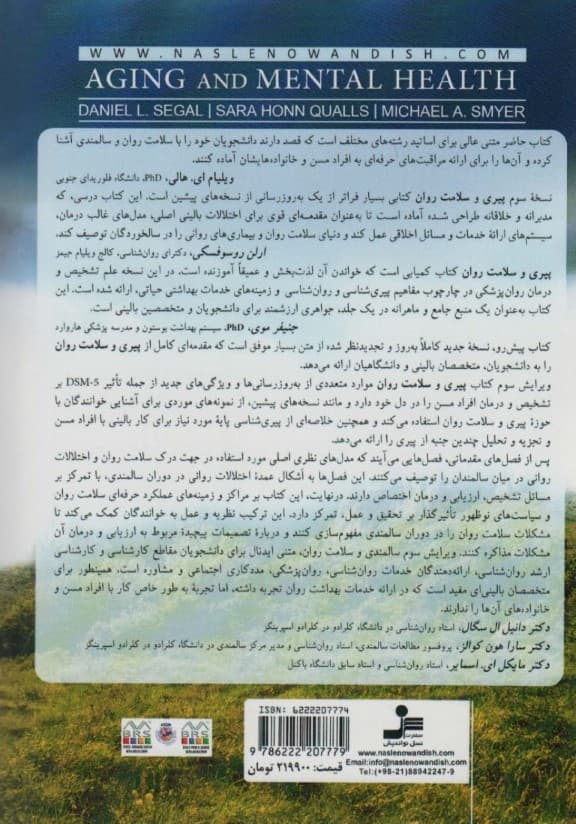 WWW.NASLENOWANDISH.COM
AGING AND MENTAL HEALTH
DANIEL L. SEGAL | SARA HONN QUALLS | MICHAEL A. SMYER
کتاب حاضر متنی عالی برای اساتید رشته‌های مختلف است که قصد دارند دانشجویان خود را با سلامت روان و سالمندی آشنا
کرده و آن‌ها را برای ارائه مراقبت‌های حرفه‌ای به افراد مسن و خانواده‌هایشان آماده کنند.
ویلیام ای. هالی، PhD، دانشگاه فلوریدای جنوبی
نسخهٔ سوم پیری و سلامت روان کتابی بسیار فراتر از یک به‌روزرسانی از نسخه‌های پیشین است. این کتاب درسی، که
مدبرانه و خلاقانه طراحی شده آماده است تا به‌عنوان مقدمه‌ای قوی برای اختلالات بالینی اصلی، مدل‌های غالب درمان،
سیستم‌های ارائهٔ خدمات و مسائل اخلاقی عمل کند و دنیای سلامت روان و بیماری‌های روانی را در سالخوردگان توصیف کند.
ارلن روسوفسکی، دکترای روان‌شناسی، کالج ویلیام جیمز
پیری و سلامت روان کتاب کمیابی است که خواندن آن لذت‌بخش و عمیقاً آموزنده است. در این نسخه علم تشخیص و
درمان روان‌پزشکی در چارچوب مفاهیم پیری‌شناسی و روان‌شناسی و زمینه‌های خدمات بهداشتی حیاتی، ارائه شده است. این
کتاب به‌عنوان یک منبع جامع و ماهرانه در یک جلد، جواهری ارزشمند برای دانشجویان و متخصصین بالینی است.
جنیفر موی، PhD، سیستم بهداشت بوستون و مدرسه پزشکی هاروارد
کتاب پیش‌رو، نسخهٔ جدید کاملاً به‌روز و تجدیدنظر شده از متن بسیار موفق است که مقدمه‌ای کامل از پیری و سلامت روان
را به دانشجویان، متخصصان بالینی و دانشگاهیان ارائه می‌دهد.
ویرایش سوم کتاب پیری و سلامت روان موارد متعددی از به‌روزرسانی‌ها و ویژگی‌های جدید از جمله تأثیر DSM-5 بر
تشخیص و درمان افراد مسن را در دل خود دارد و مانند نسخه‌های پیشین، از نمونه‌های موردی برای آشنایی خوانندگان با
حوزهٔ پیری و سلامت روان استفاده می‌کند و همچنین خلاصه‌ای از پیری‌شناسی پایهٔ مورد نیاز برای کار بالینی با افراد مسن و
تجزیه و تحلیل چندین جنبه از پیری را ارائه می‌دهد.
پس از فصل‌های مقدماتی، فصل‌هایی می‌آیند که مدل‌های نظری اصلی مورد استفاده در جهت درک سلامت روان و اختلالات
روانی در میان سالمندان را توصیف می‌کنند. این فصل‌ها به أشکال عمدهٔ اختلالات روانی در دوران سالمندی، با تمرکز بر
مسائل تشخیص، ارزیابی و درمان اختصاص دارند. درنهایت، این کتاب بر مراکز و زمینه‌های عملکرد حرفه‌ای سلامت روان
و سیاست‌های نوظهور تأثیرگذار بر تحقیق و عمل، تمرکز دارد. این ترکیب نظریه و عمل به خوانندگان کمک می‌کند تا
مشکلات سلامت روان را در دوران سالمندی مفهوم‌سازی کنند و دربارهٔ تصمیمات پیچیدهٔ مربوط به ارزیابی و درمان آن
مشکلات مذاکره کنند. ویرایش سوم سالمندی و سلامت روان، متنی ایدئال برای دانشجویان مقاطع کارشناسی و کارشناسی
ارشد روان‌شناسی، ارائه‌دهندگان خدمات روان‌شناسی، روان‌پزشکی، مددکاری اجتماعی و مشاوره است. همینطور برای
متخصصان بالینی‌ای مفید است که در ارائه خدمات بهداشت روان تجربه داشته، اما تجربهٔ به طور خاص کار با افراد مسن و
خانواده‌های آن‌ها را ندارند.
دکتر دانیل ال سگال، استاد روان‌شناسی در دانشگاه کلرادو در کلرادو اسپرینگز
دکتر سارا هون کوالز، پروفسور مطالعات سالمندی، استاد روان‌شناسی و مدیر مرکز سالمندی در دانشگاه کلرادو در کلرادو اسپرینگز
دکتر مایکل ای. اسمایر، استاد روان‌شناسی و استاد سابق دانشگاه باکنل
ISBN: 6222207774
9 786222 207779
قیمت: ۲۱۹۹۰۰ تومان
نسل نواندیش
www.naslenowandish.com
Email:info@naslenowandish.com
Tel:(+98-21)88942247-9
BRS
BRS